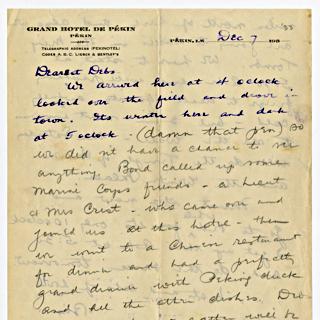 GRAND HOTEL DE PÉKIN
PÉKIN
TELEGRAPHIC ADDRESS (PEKINOTEL)
CODES A.B.C. LIEBER & BENTLEY'S
PÉKIN, LE Dec 7 193
'35
Dearest Debs
We arrived here at 4 oclock
looked over the field and drove in
town. Its winter here and dark
at 5 oclock - (damn that pen) So
we didnt have a chance to see
anything. Bond called up some
Marine Corps friends - a Lieut
& Mrs Crist - who came over and
joined us at this hotel - then
we went to a Chinese restaurant
for dinner and had a perfectly
grand dinner with Peking duck
and all the other dishes.
will be